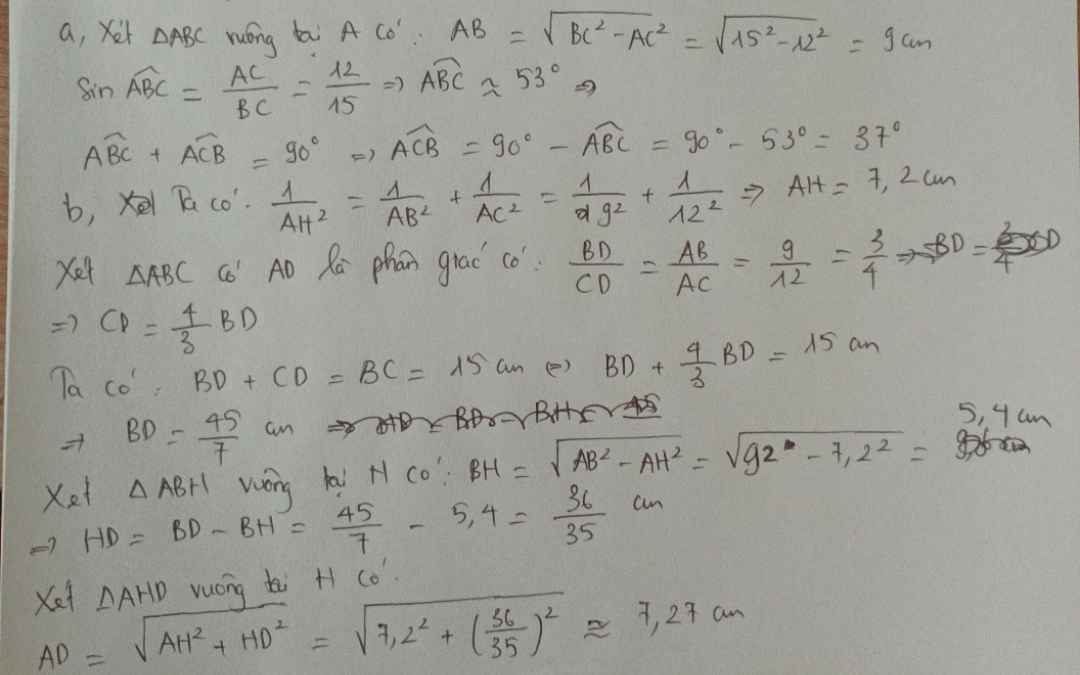 a, Xét ΔABC vuông tại A có: AB = √(BC² - AC²) = √(15² - 12²) = 9 cm
Sin ABC = AC/BC = 12/15 => ABC ≈ 53° =>
ABC + ACB = 90° => ACB = 90° - ABC = 90° - 53° = 37°
b, Xét Ta có: 1/AH² = 1/AB² + 1/AC² = 1/9² + 1/12² => AH = 7,2 cm
Xét ΔABC có AD là phân giác có: BD/CD = AB/AC = 9/12 = 3/4 => BD = 3/4 CD
=> CD = 4/3 BD
Ta có: BD + CD = BC = 15 cm (=) BD + 4/3 BD = 15 cm
=> BD = 45/7 cm => HD = BD - BH = 45
Xét ΔABH vuông tại H có: BH = √(AB² - AH²) = √(92 - 7,2²) = 5,4 cm
=> HD = BD - BH = 45/7 - 5,4 = 36/35 cm
Xét ΔAHD vuông tại H có:
AD = √(AH² + HD²) = √(7,2² + (36/35)²) ≈ 7,27 cm